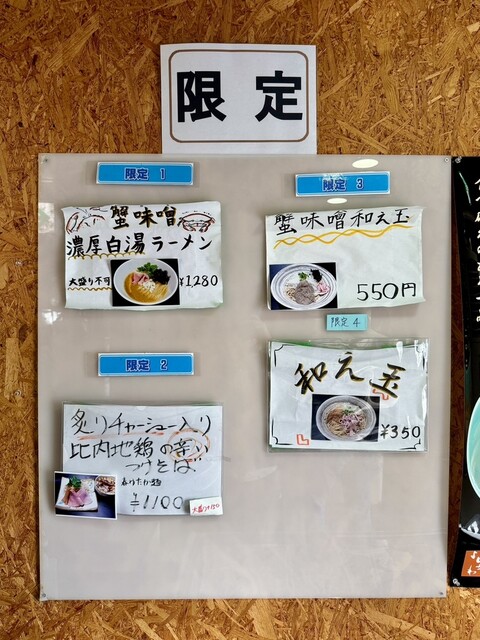 限定
限定 1
蟹味噌
濃厚白湯ラーメン
大盛り不可
¥1,280
限定 2
炙りチャーシュー入り
比内地鶏の辛い
つけそば
¥1100
大盛り+150
限定 3
蟹味噌和え玉
550円
限定 4
和え玉
¥350